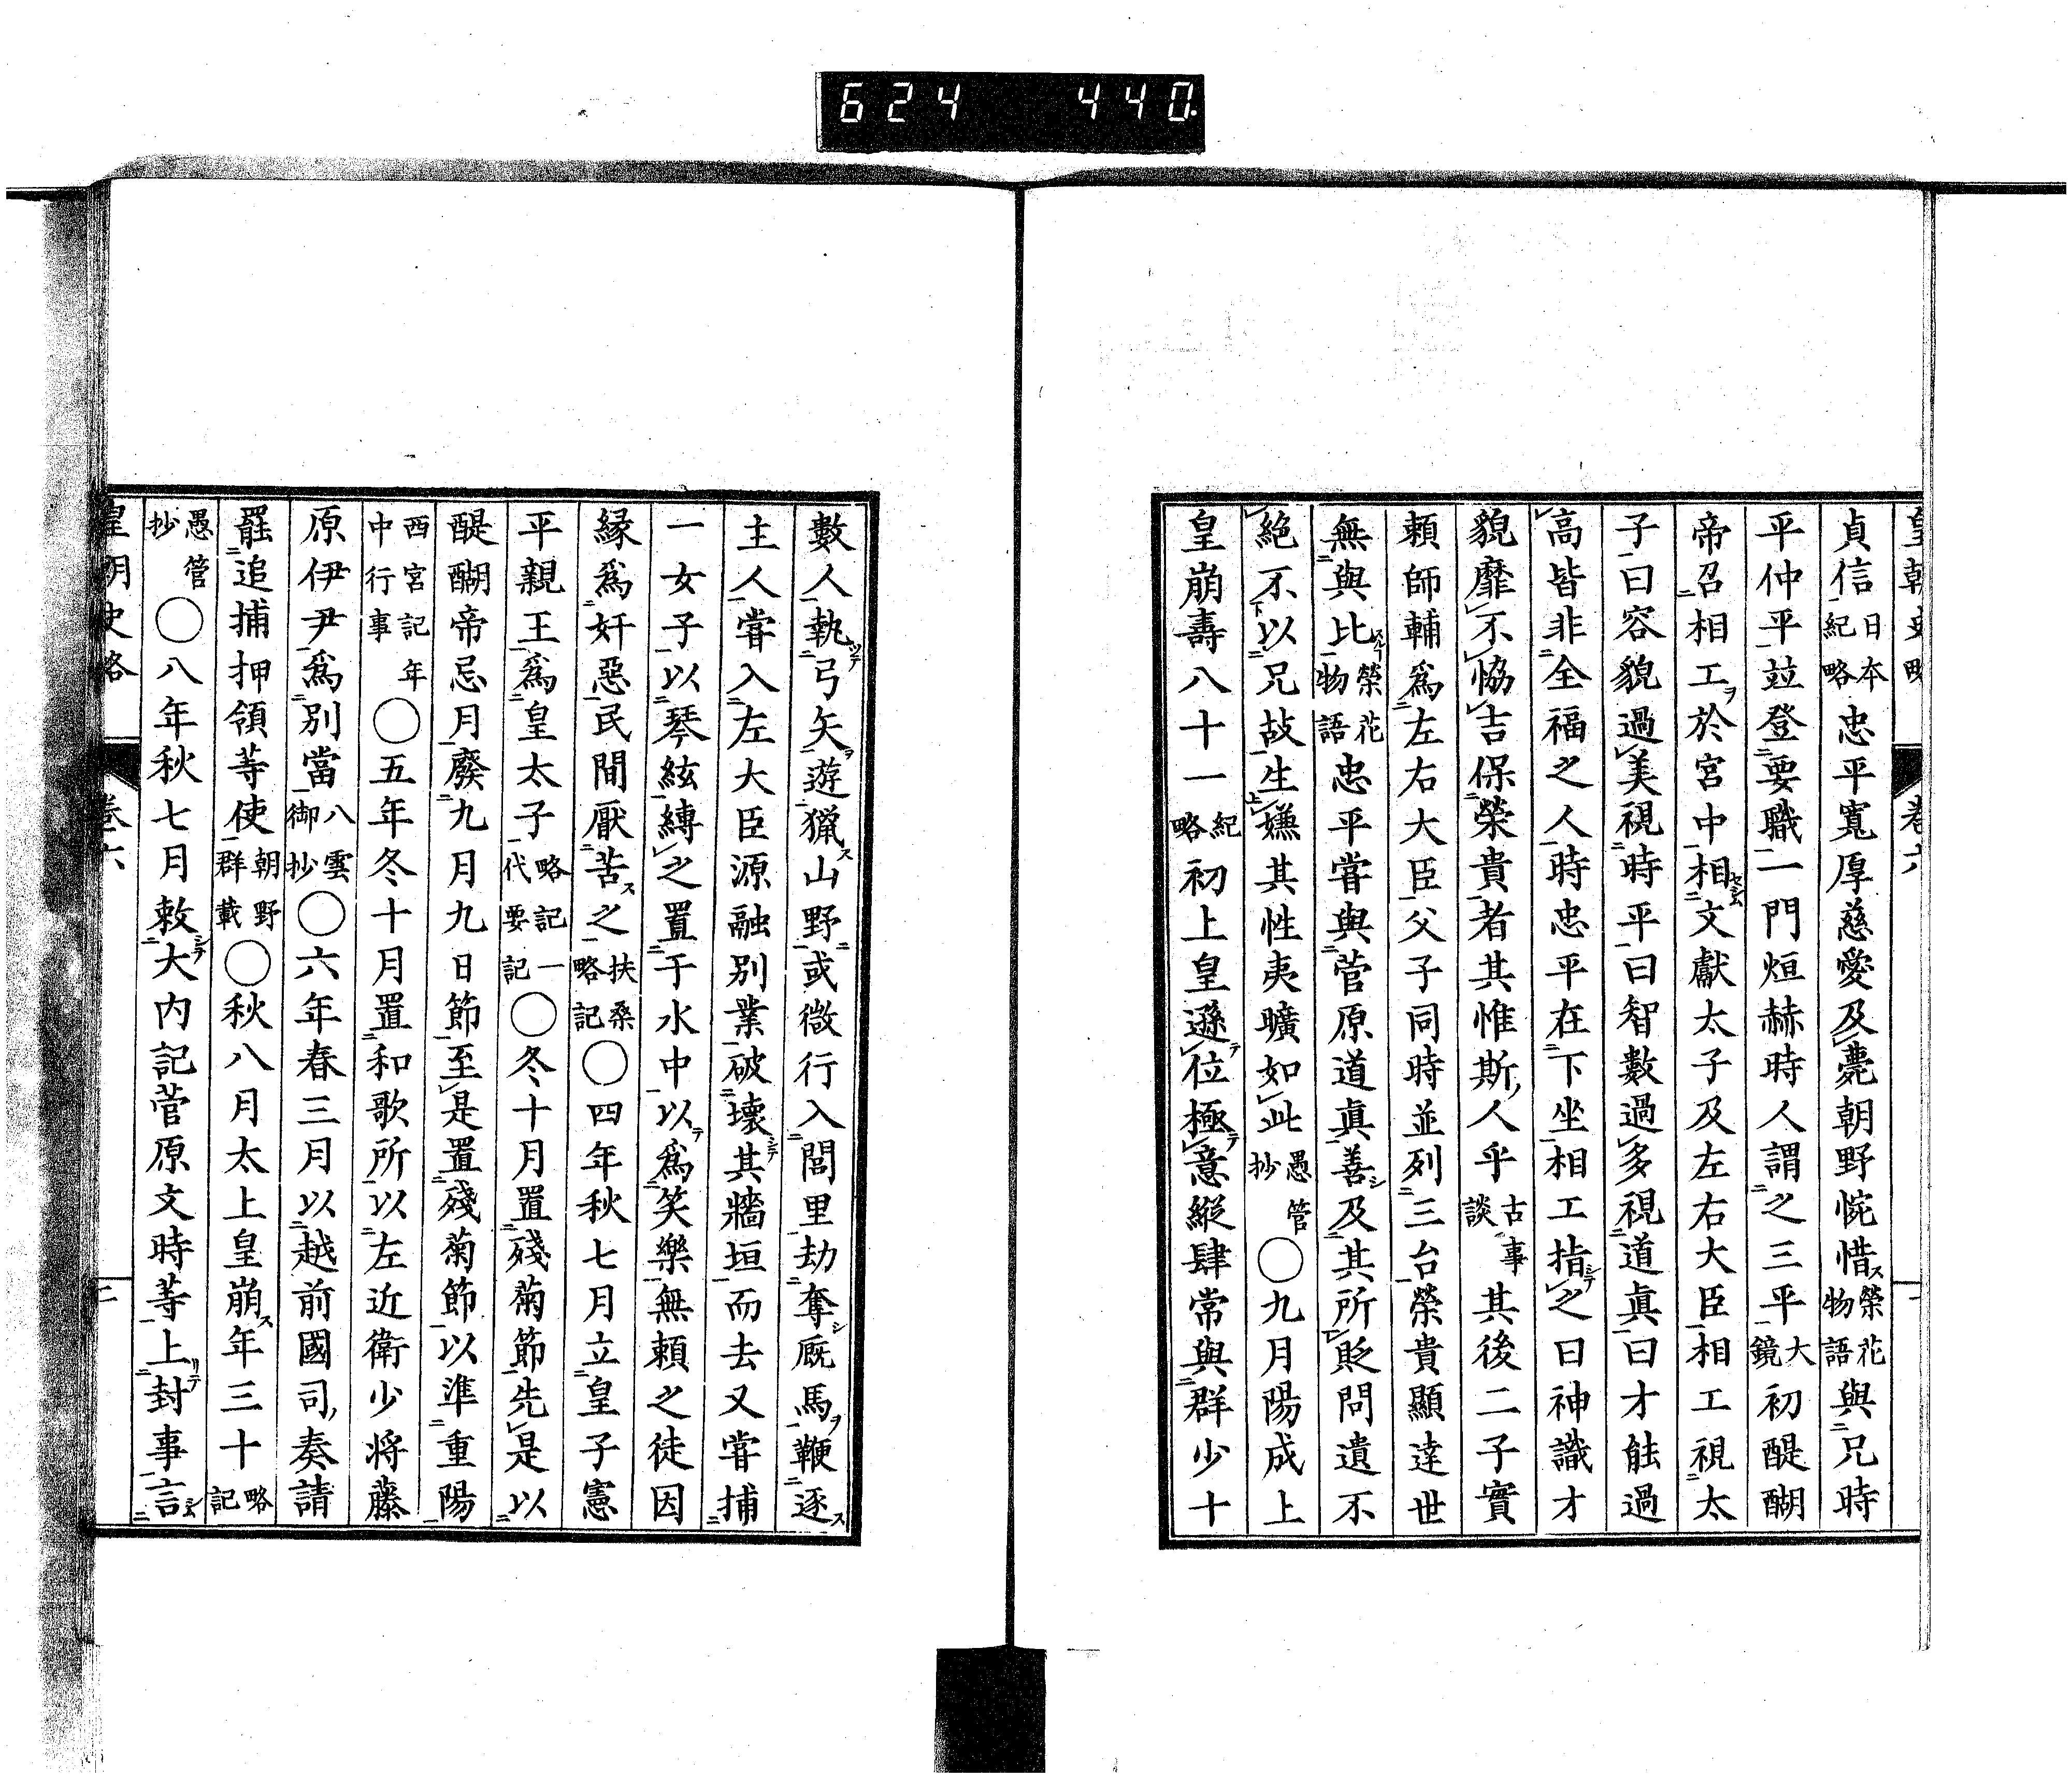 624 440.
皇朝史略 卷六
貞信日本紀略忠平寬厚慈愛及薨朝野惋惜ス榮花物語與兄時
平仲平竝登要職一門烜赫時人謂之三平大鏡初醍醐
帝召相工ヲ於宮中相セシム文獻太子及左右大臣相工視太
子曰容貌過美視時平曰智數過多視道眞曰才能過
高皆非全福之人時忠平在下坐相工指シテ之曰神識才
貌靡不恊吉保榮貴者其惟斯人乎古事談其後二子實
頼師輔爲左右大臣父子同時並列三台榮貴顯達世
無與比スル榮花物語忠平甞與菅原道眞善シ及其所貶問遺不
絕不以兄故生嫌其性夷曠如此愚管抄○九月陽成上
皇崩壽八十一紀略初上皇遜テ位極テ意縱肆常與群少十
數人執ツテ弓矢ヲ遊獵ス山野ニ或微行入閭里劫奪シ厩馬ヲ鞭逐ス
主人甞入左大臣源融別業破壞シテ其牆垣而去又甞捕
一女子以琴絃縛之置于水中以テ爲笑樂無頼之徒因
緣爲奸惡民間厭苦ス之扶桑略記○四年秋七月立皇子憲
平親王爲皇太子略記一代要記○冬十月置殘菊節先是以
醍醐帝忌月廢九月九日節至是置殘菊節以準重陽
西宮記年中行事○五年冬十月置和歌所以左近衛少將藤
原伊尹爲別當八雲御抄○六年春三月以越前國司奏請
罷追捕押領等使朝野群載○秋八月太上皇崩ス年三十略記
愚管抄○八年秋七月敕シテ大内記菅原文時等上リテ封事言シム
皇朝史略 卷六 二